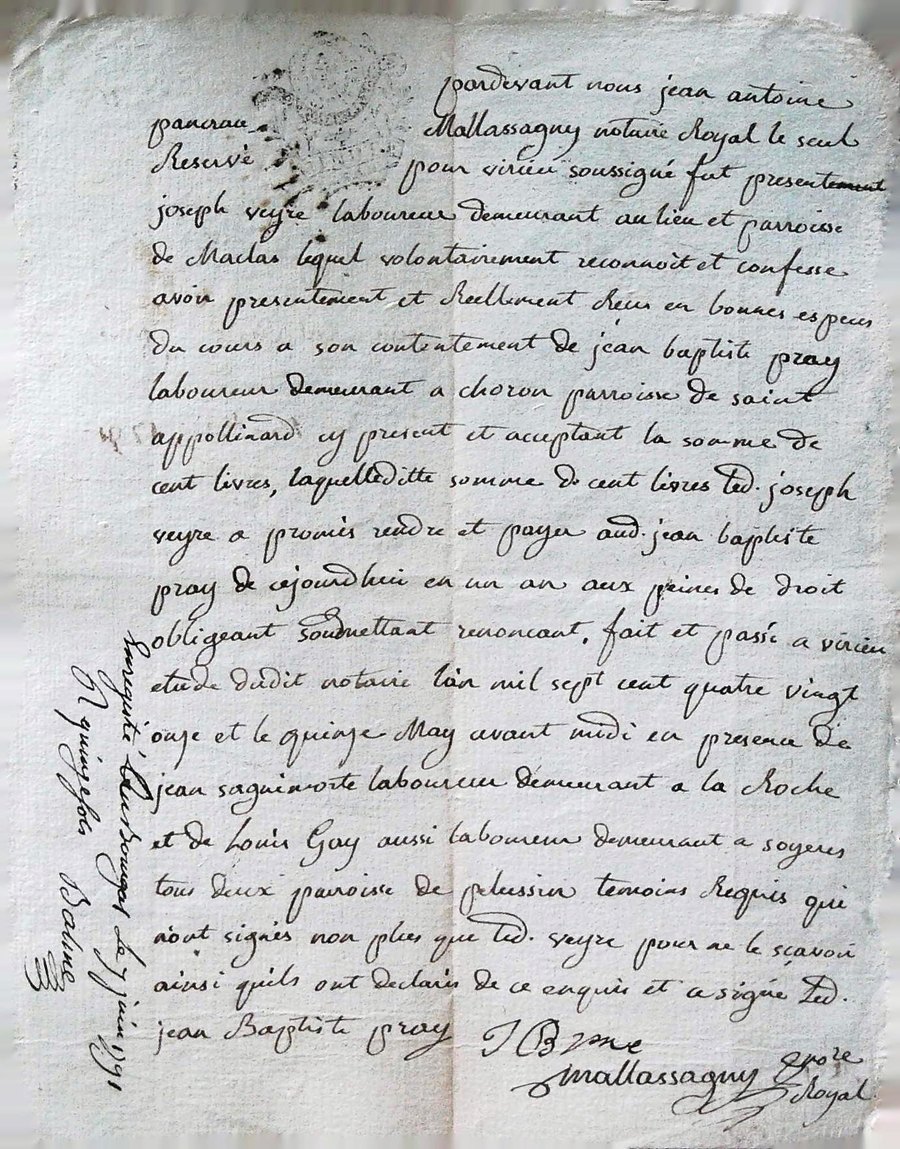 pardevant nous jean antoine
pancrau Mallassagny notaire Royal le seul
Reservé pour virieu soussigné fut presentement
joseph veyre laboureur demeurant au lieu et parroisse
de Maclas lequel volontairement reconnoit et confesse
avoir presentement et Reellement Reçu en bonnes especes
du cours a son contentement de jean baptiste pray
laboureur demeurant a choron parroisse de saint
appollinard cy present et acceptant la somme de
cent livres, laquelleditte somme de cent livres led. joseph
veyre a promis rendre et payer aud. jean baptiste
pray de cejourdhui en un an aux peines de droit
obligeant soumettant renoncant, fait et passé a virieu
etude dudit notaire l'an mil sept cent quatre vingt
onze et le quinze May avant midi en presence de
jean saguimorte laboureur demeurant a la Roche
et de Louis Gay aussi laboureur demeurant a soyeres
tous deux parroisse de pelussin temoins Requis qui
n'ont signés non plus que led. veyre pour ne le scavoir
ainsi qu'ils ont declaré de ce enquis et a signé led.
jean Baptiste pray J B
Mallassagny nore
Royal
Enregistré Bourgat Le 7 juin 1791
R quinze sols Balme